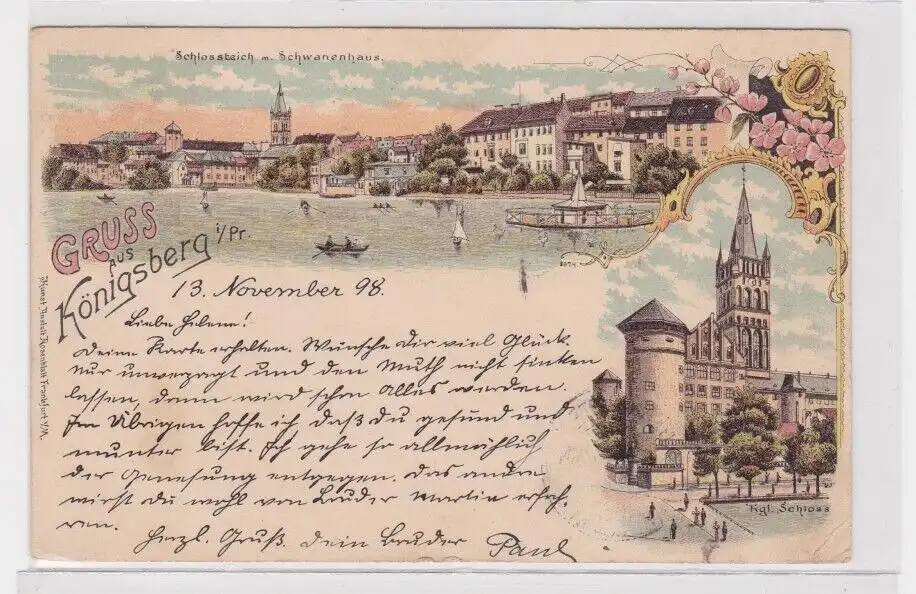 Schlossteich m. Schwanenhaus.
GRUSS
AUS
Königsberg i/Pr.
13. November 98.
Liebe Helene!
Deine Karte erhalten. Wünsche dir viel Glück.
Nur unverzagt und den Muth nicht sinken
lassen, dann wird schon Alles werden.
Im Übrigen hoffe ich daß du gesund und
munter bist. Ich gehe so allmählich
der Genesung entgegen. Das andre
wirst du wohl von Bruder Martin erfah,
ren.
Herzl. Gruß. Dein Bruder Paul
Kgl. Schloss
Kunst-Anstalt Rosenblatt Frankfurt a/M.